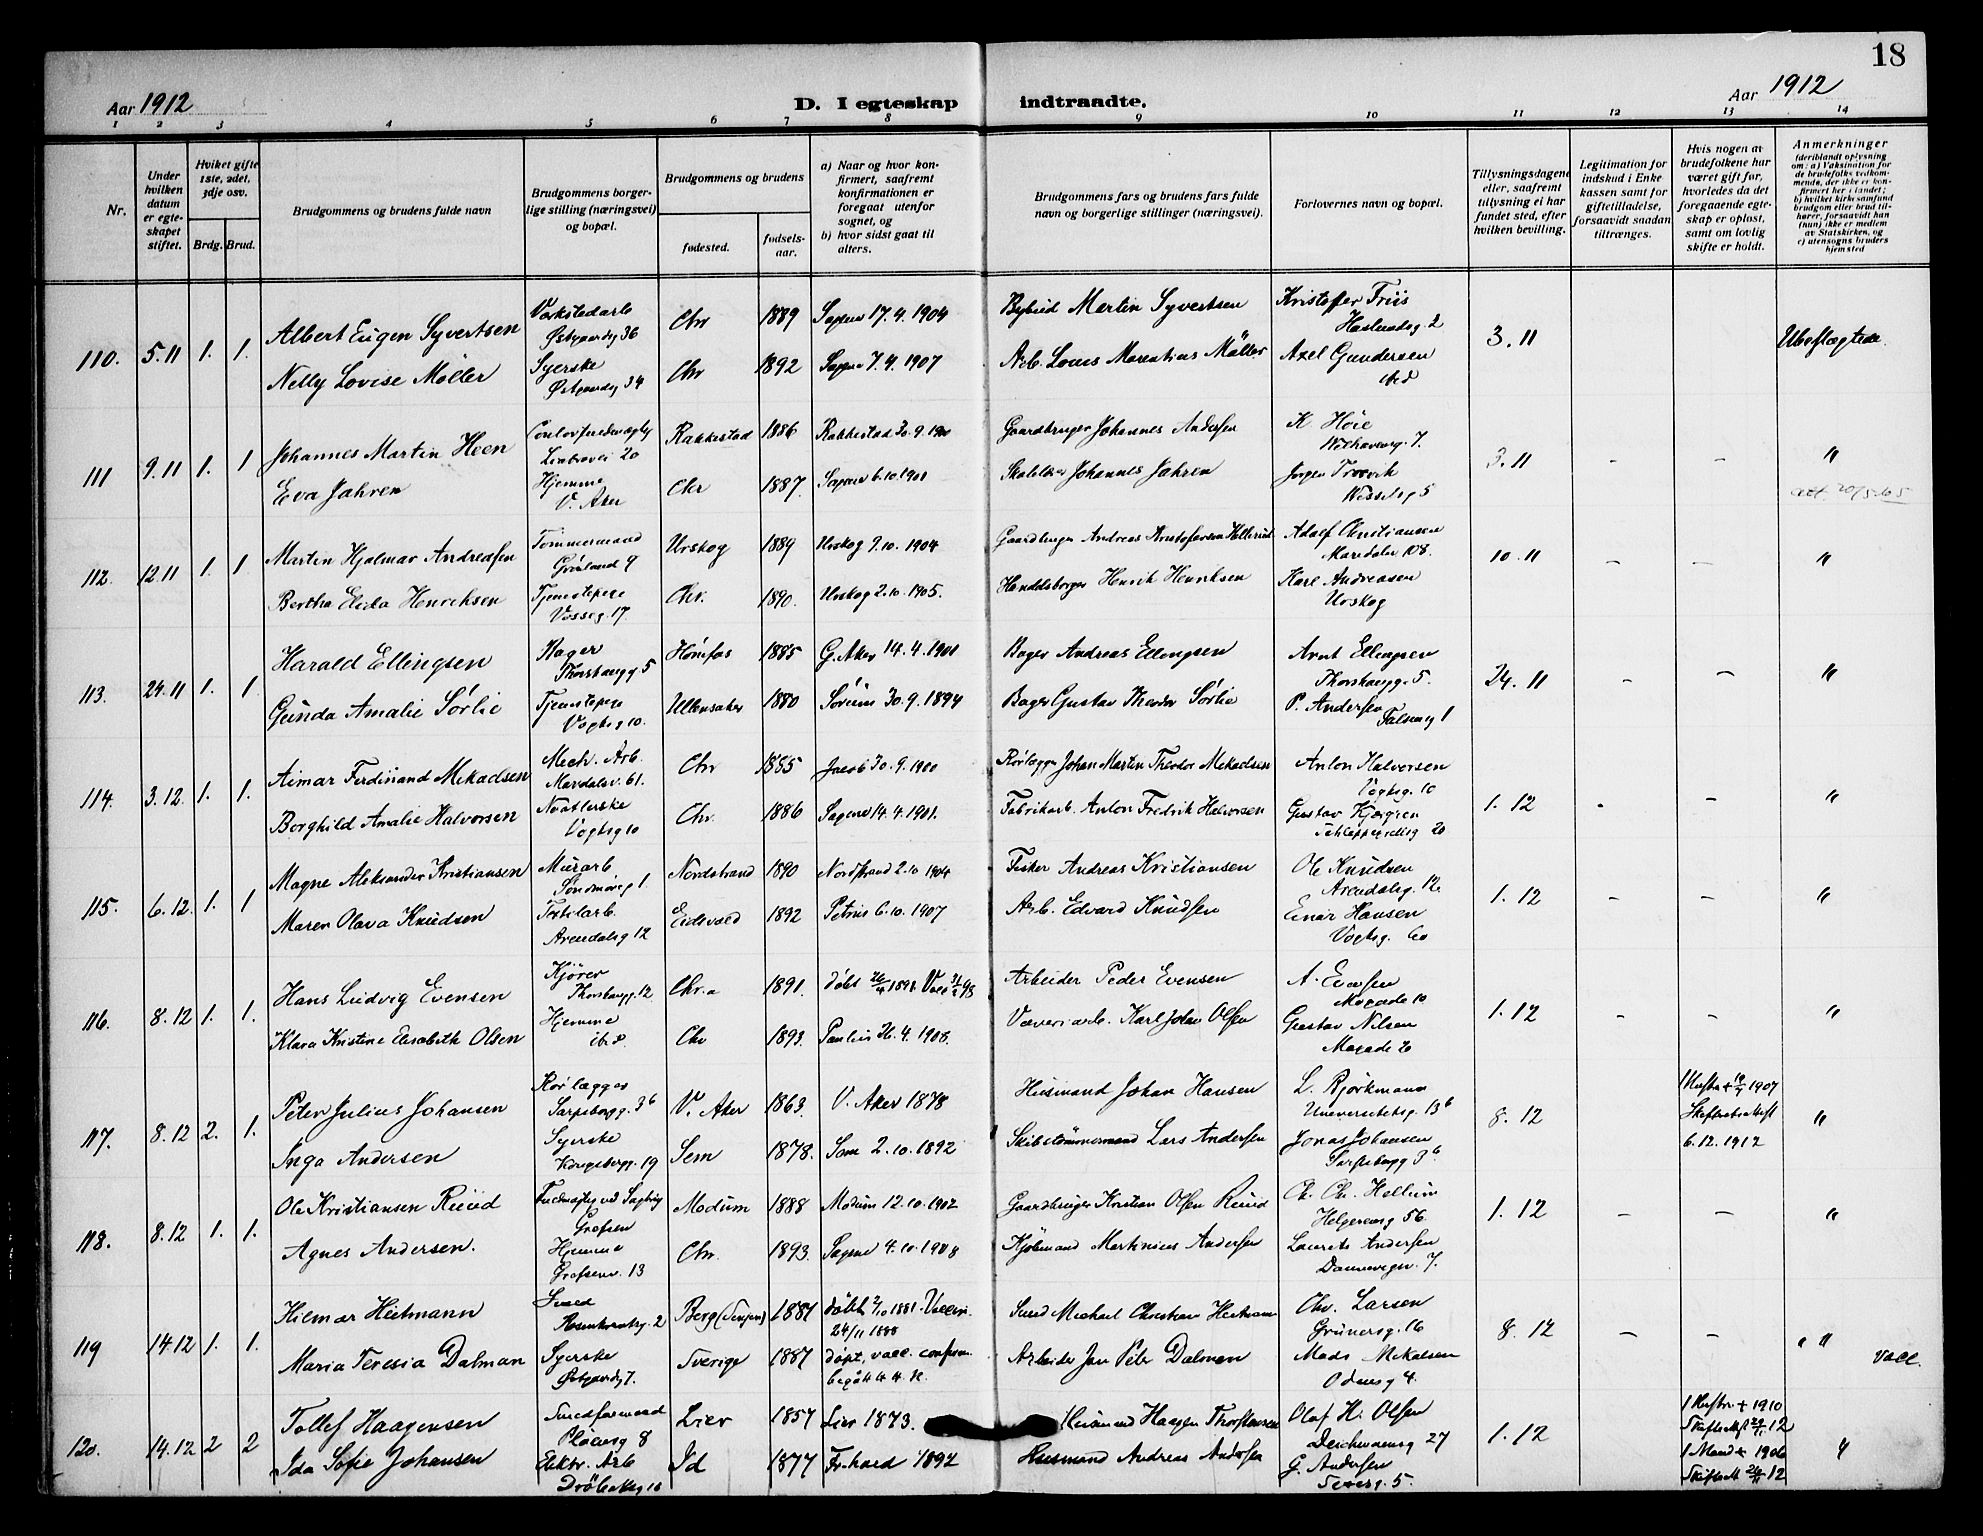 18
Aar 1912
D. I egteskap indtraadte.
Aar 1912
1 2 3 4 5 6 7 8 9 10 11 12 13 14
Nr.
Under hvilken datum er egteskapet stiftet.
Hvilket gifte 1ste, 2det, 3dje osv.
Brdg. Brud.
Brudgommens og brudens fulde navn
Brudgommens borgerlige stilling (næringsvei) og bopæl.
Brudgommens og brudens
fødested.
fødselsaar.
a) Naar og hvor konfirmert, saafremt konfirmationen er foregaat utenfor sognet, og
b) hvor sidst gaat til alters.
Brudgommens fars og brudens fars fulde navn og borgerlige stillinger (næringsvei).
Forlovernes navn og bopæl.
Tillysningsdagene eller, saafremt tillysning ei har fundet sted, efter hvilken bevilling.
Legitimation for indskud i Enkekassen samt for giftetilladelse, forsaavidt saadan tiltrænges.
Hvis nogen av brudefolkene har været gift før, hvorledes da det foregaaende egteskap er opløst, samt om lovlig skifte er holdt.
Anmerkninger
(deriblandt oplysning om: a) Vaksination for de brudefolks vedkommende, der ikke er konfirmert her i landet; b) hvilket kirkesamfund brudgom eller brud tilhører, forsaavidt han (hun) ikke er medlem av Statskirken, og c) utensogns bruders hjemsted
110. 5.11 1. 1.
Albert Eugen Syvertsen Verkstedarb Østgaardsg 36 Chr 1889 Sagene 17.4.1904 Bybud Martin Syvertsen Kristoffer Friis 2 3.11 Ubeslegtede
Nelly Lovise Møller Syerske Østgaardsg 34 Chr 1892 Sagene 7.4.1907 Arb. Louis Marentius Møller Axel Gundersen ibid
111 9.11 1. 1
Johannes Martin Heen 20 Rakkestad 1886 Rakkestad 30.9.1900 Gaardbruger Johannes Andersen K Høie 7. 3.11 - - "
Eva Jahren Hjemme V. Aker Chr 1887. Sagene 6.10.1901 Johannes Jahren Jørgen 5
112. 12.11 1. 1
Martin Hjalmar Andreassen Tømmermand Grønland 9 Urskog 1889 Urskog 9.10.1904 Gaardbruger Andreas Kristofersen Adolf Christiansen Maridalsv 108. 10.11 - - "
Bertha Elida Henriksen Tjenestepige Vosseg. 17. Chr. 1890. Urskog 2.10.1905. Handelsborger Henrik Henriksen Karl Andreasen Urskog
113. 24.11 1. 1
Harald Ellingsen Bager Thorshaugg 5 Hønefos 1885 G. Aker 14.4.1901 Bager Andreas Ellingsen Arnt Ellingsen Thorshaugg. 5. 24.11 - - "
Gunda Amalie Sørlie Tjenestepige Vogtsg 10. Ullensaker 1880 Sørum 30.9.1894 Bager Gustav Theodor Sørlie P. Andersen Falseng 1
114. 3.12. 1. 1.
Aimar Ferdinand Mikaelsen Mech. Arb. Maridalsv. 61. Chr 1885 Jacob 30.9.1900 Rørlægger Johan Martin Theodor Mikaelsen Anton Halvorsen Vogtsg. 10 1.12 - - "
Borghild Amalie Halvorsen Vogtsg 10 Chr. 1886 Sagene 14.4.1901. Fabrikarb. Anton Fredrik Halvorsen Gustav 20
115. 6.12. 1. 1
Magne Aleksander Kristiansen Murarb Søndmørsg 1. Nordstrand 1890 Nordstrand 2.10 1904 Fisker Andreas Kristiansen Ole Knudsen Arendalsg. 12. 1.12 - - "
Maren Olava Knudsen Textilarb. Arendalsg 12 Eidsvold 1892 Petrus 6.10.1907 Arb. Edvard Knudsen Einar Hansen Vogtsg. 60
116. 8.12 1. 1.
Hans Ludvig Evensen Kjører Thorshaugg. 12 Chr.a 1891. døbt 26/4 1891. Arbeider Peder Evensen A. Evensen 10 1.12 - - "
Klara Kristine Elisabeth Olsen Hjemme ibid. Chr 1893. Paulus 26.4.1908. Væveriarb. Karl Johan Olsen Gustav Nilsen 20
117. 8.12 2. 1.
Peter Julius Johansen Rørlægger Sarpsborgg. 3b V. Aker 1863. V. Aker 1878 Husmand Johan Hansen L. Bjørkmann Universitetsg. 13b 8.12 1 Hustru + 1907 Skifteattest 6.12.1912 "
Inga Andersen Syerske Kongsbergg. 19 Sem 1878. Sem 2.10.1892 Skibstømmermand Lars Andersen Jonas Johansen Sarpsborgg 3b
118. 8.12 1. 1.
Ole Kristiansen Ruud Grefsen Modum 1888 Modum 12.10.1902 Gaardbruger Kristian Olsen Ruud Ch. Chr. Hellum Helgesensg 56. 1.12 - - "
Agnes Andersen. Hjemme Grefsenv. 13 Chr. 1893. Sagene 4.10.1908 Kjøbmand Martinius Andersen Laurits Andersen Dannevigsv. 7.
119 14.12 1. 1.
Hilmar Heitmann Smed 2 Berg (Senjen) 1881 døbt 2/10 1881. Vaccin. 24/11 1888 Smed Michael Christian Heitmann Chr. Larsen Grünersg. 16 8.12 - - " "
Maria Teresia Dalman Syerske Østgaardsg 7. Sverige 1887 döpt, vacc. Arbeider Jan Peter Dalman Mads Mikalsen Odensg 4. vacc.
120. 14.12 2 2
Tollef Haagensen Smedformand Pløensg 8 Lier 1857 Lier 1873. Husmand Haagen Thorstensen Olaf H. Olsen 27 1.12 1 Hustru + 1910
Ida Sofie Johansen Elektr. Arb Drøbaksg 10 Id 1877 Fr.hald 1892 Husmand Andreas Andersen G. Andersen 5. 1 Mand + 1906